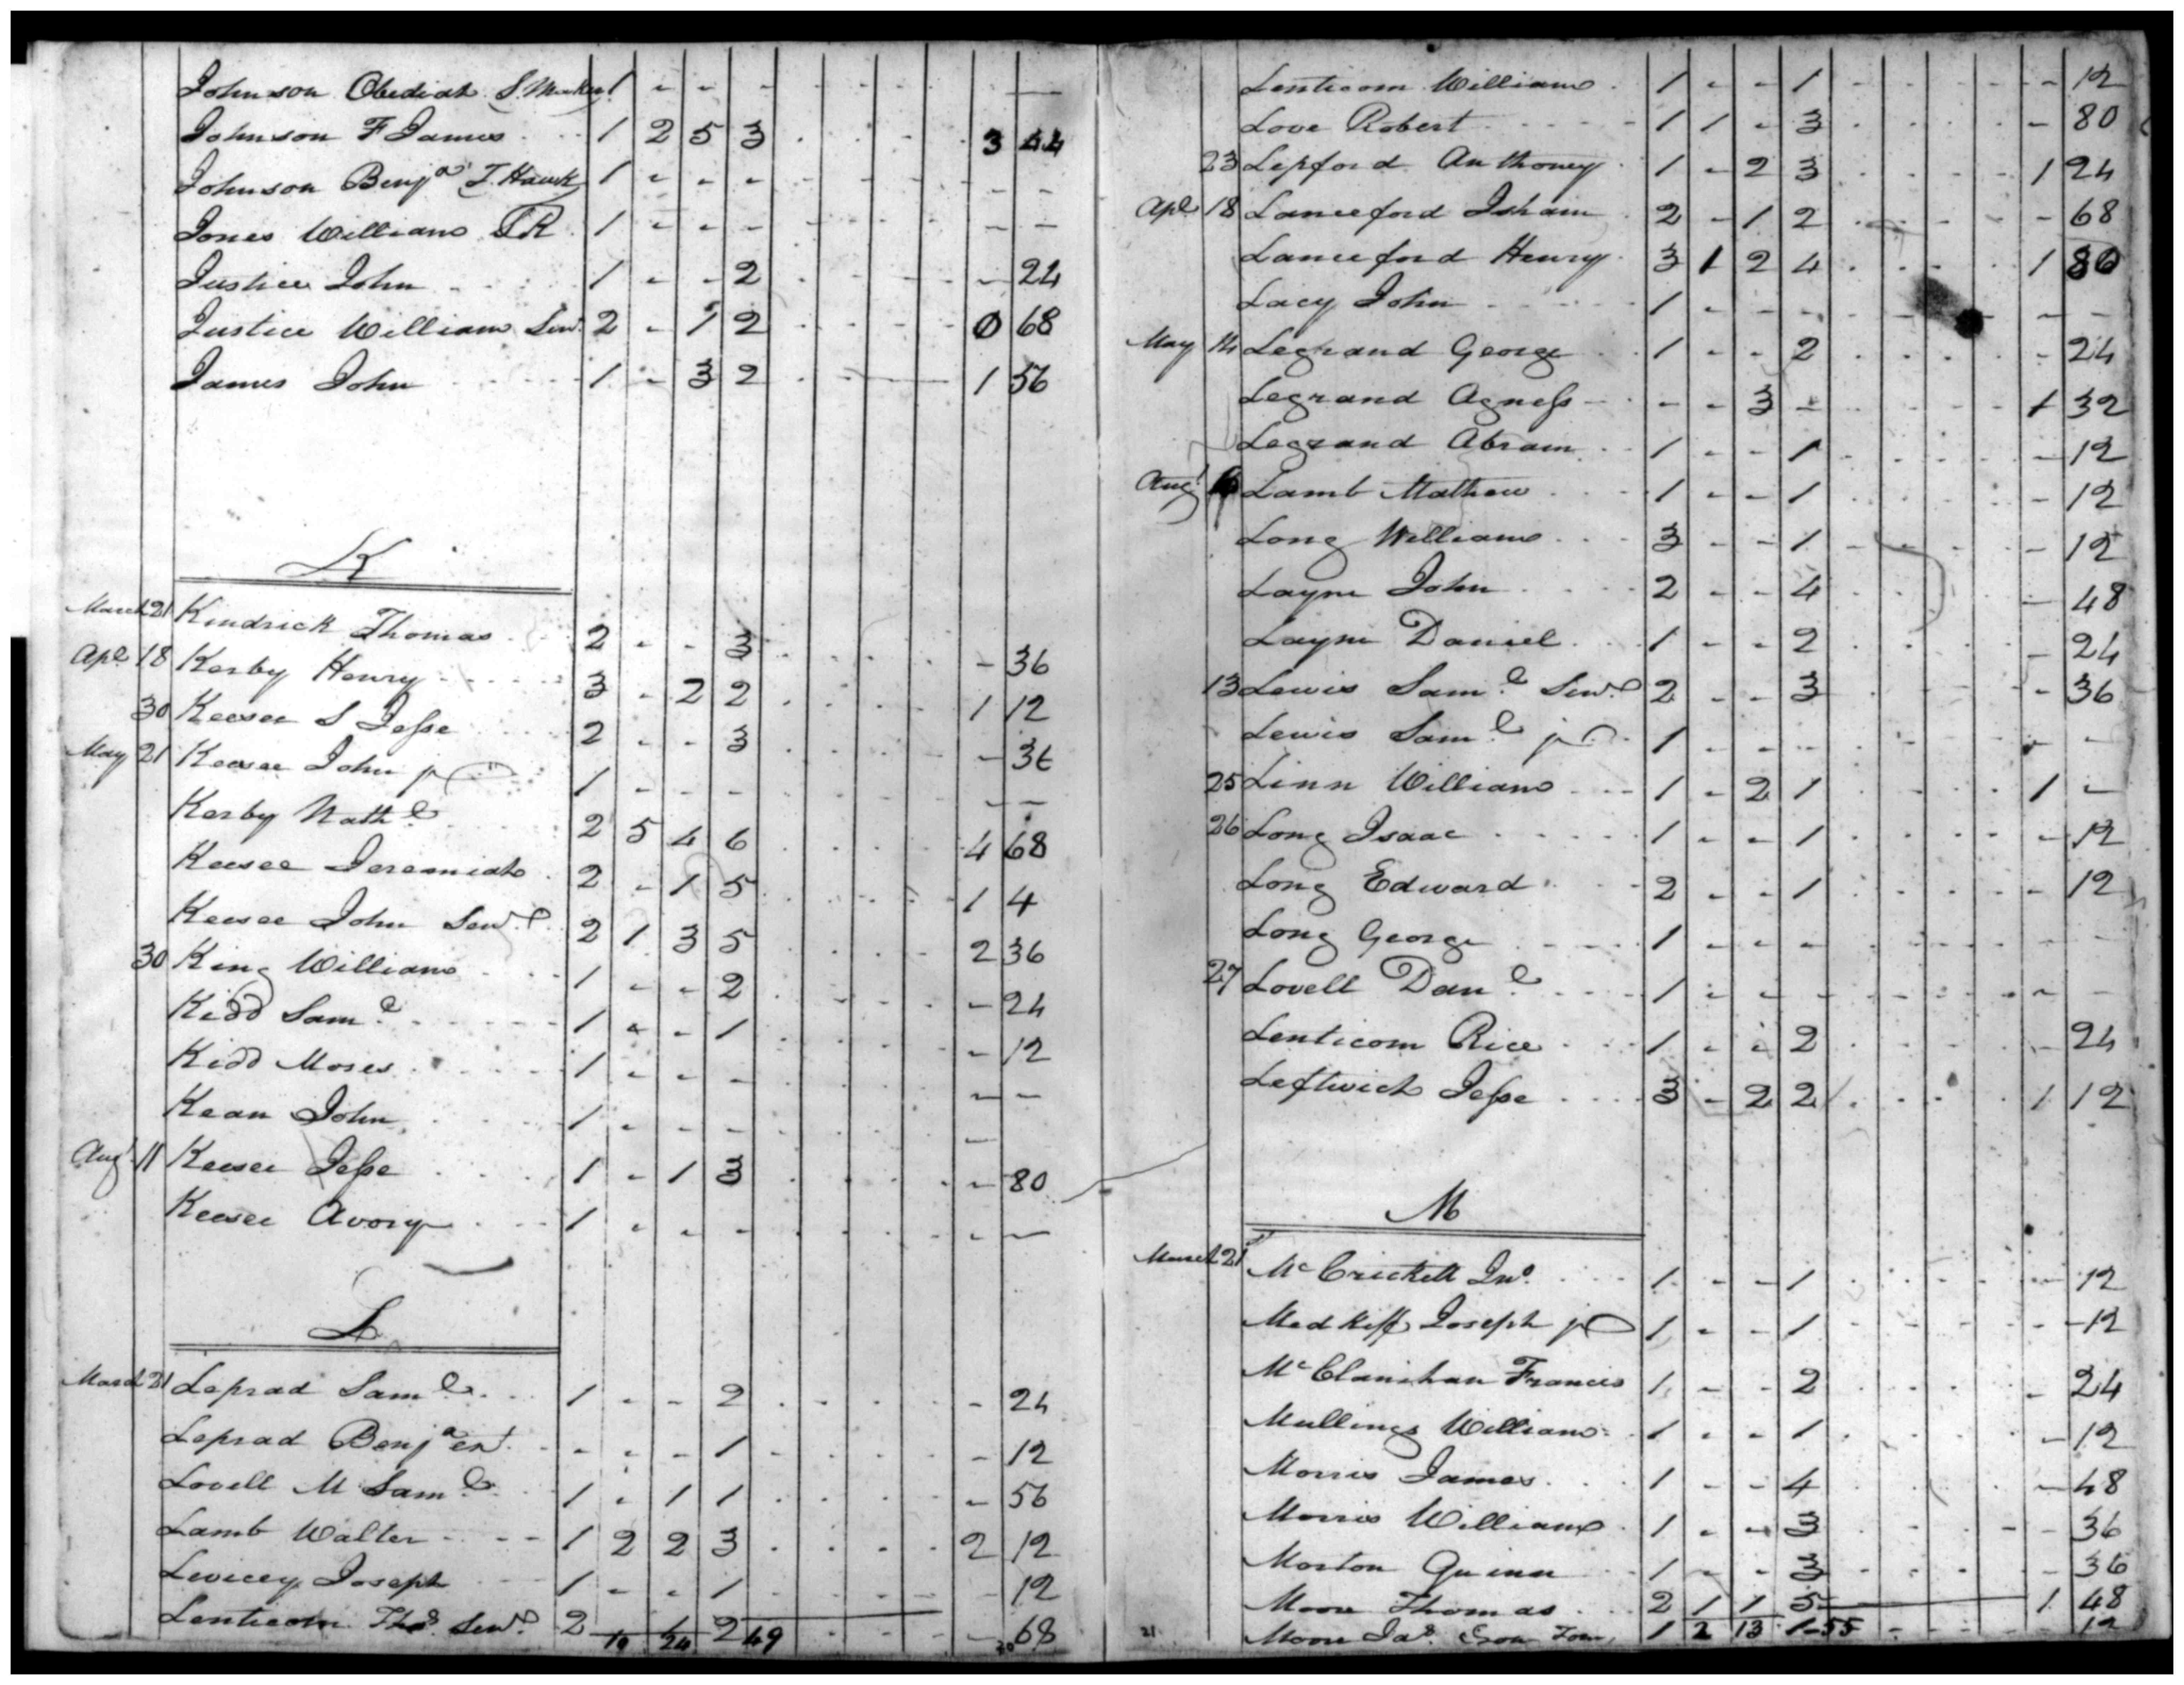 Johnson Obediah S. Maker 1 - - - - - - - - —
Johnson F James 1 2 5 3 - - - - 3 44
Johnson Benja T. Hawk 1 - - - - - - - - -
Jones William TR 1 - - - - -
Justice John 1 - - 2 - - - - - 24
Justice William Senr 2 - 1 2 - - - - 0 68
James John 1 - 3 2 - - - - 1 56
K
March 21 Kindrick Thomas 2 - - 3 - 36
Apl 18 Kerby Henry 3 - 2 2 1 12
30 Keesee S Jesse 2 - - 3 - 36
May 21 Keesee John jr 1 - - - - -
Kerby Nathl 2 5 4 6 4 68
Keesee Jeremiah 2 - 1 5 1 4
Keesee John Senr 2 1 3 5 2 36
30 King William 1 - - 2 - 24
Kidd Saml 1 - - 1 - 12
Kidd Moses 1 - - - - -
Kean John 1 - - - -
Augt 11 Keesee Jesse 1 - 1 3 - 80
Keesee Avory 1 - - - - -
L
March 21 Leprad Saml 1 - - 2 - 24
Leprad Benja est - - - 1 - 12
Lovell M Saml 1 - 1 1 - 56
Lamb Walter 1 2 2 3 2 12
Livicey Joseph 1 - - 1 12
Lenticom Thos Senr 2 - 1 2 - 68
10 24 49 20
Lenticom William 1 - - 1 - 12
Love Robert 1 1 - 3 - 80
23 Lepford Anthoney 1 - 2 3 1 24
Apl 18 Lanceford Isham 2 - 1 2 - 68
Lanceford Henry 3 1 2 4 1 80
Lacy John 1 - - - - -
May 14 Legrand George 1 - - 2 - 24
Legrand Agness - - 3 - 1 32
Legrand Abram 1 - - 1 - 12
Augt Lamb Mathew 1 - - 1 - 12
Long William 3 - - 1 - 12
Layne John 2 - - 4 - 48
Layne Daniel 1 - - 2 - 24
13 Lewis Saml Senr 2 - - 3 - 36
Lewis Saml jr 1 - - - - -
25 Linn William 1 - 2 1 1 -
26 Long Isaac 1 - - 1 - 12
Long Edward 2 - - 1 - 12
Long George 1 - - - - -
27 Lovell Danl 1 - - - - -
Lenticom Rice 1 - - 2 - 24
Leftwich Jesse 3 - 2 2 1 12
M
March 21 McCrickett Jno 1 - - 1 - 12
Medkiff Joseph jr 1 - - 1 - 12
McClanihan Francis 1 - - 2 - 24
Mullings William 1 - - 1 - 12
Morris James 1 - - 4 - 48
Morris William 1 - - 3 - 36
Morton Quinn 1 - - 3 - 36
Moore Thomas 2 1 1 5 1 48
21 Moore Jas Son Tom 1 2 13 1 55 - 12